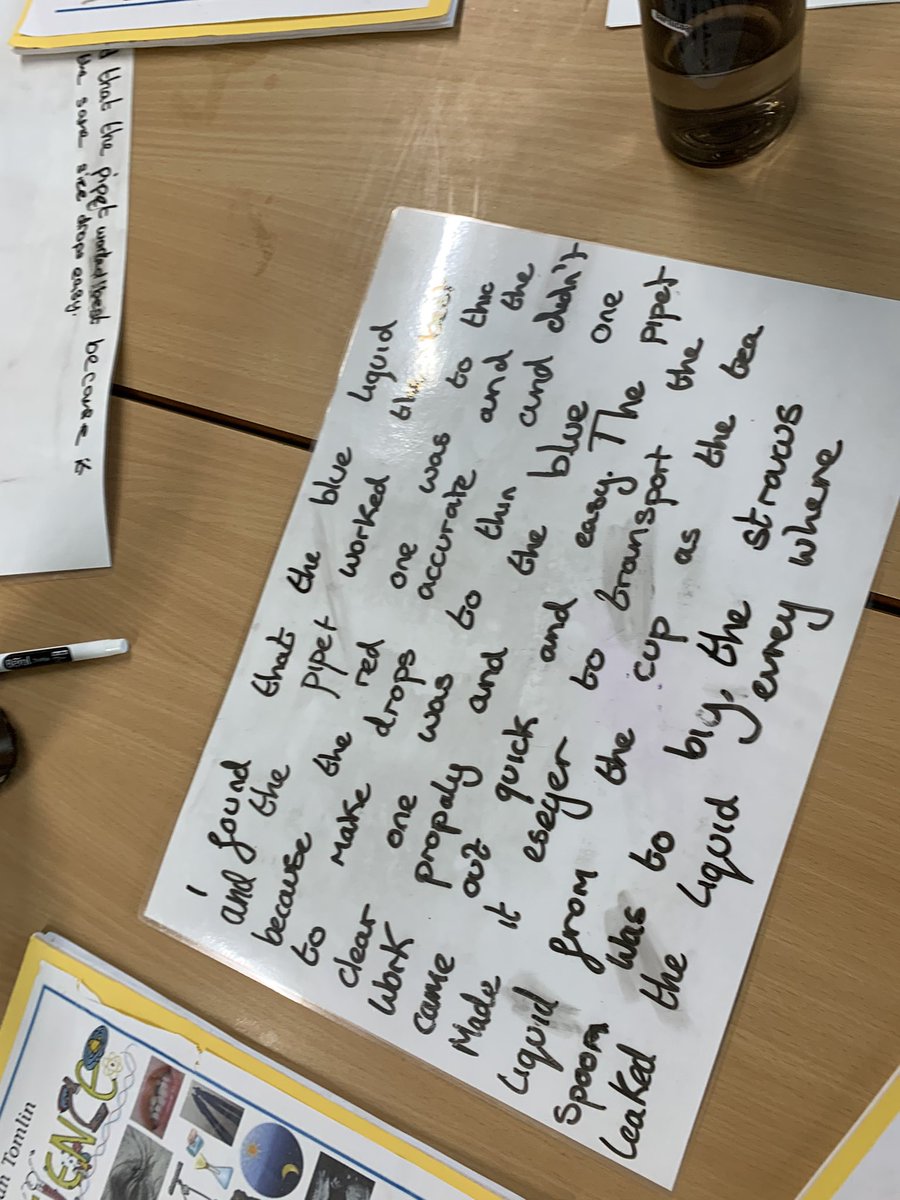 that the pipet worked best because is
same size drops easy.
I found that the blue liquid
and the pipet worked the best
because the red one was to thic
to make drops accurate and the
clear one was to thin and didn't
work propaly and the blue one
came out quick and easy. The pipet
Made it eseyer to transport the
liquid from the cup as the tea
spoom was to big, the straws
leaked the liquid evrey where
Tomlin